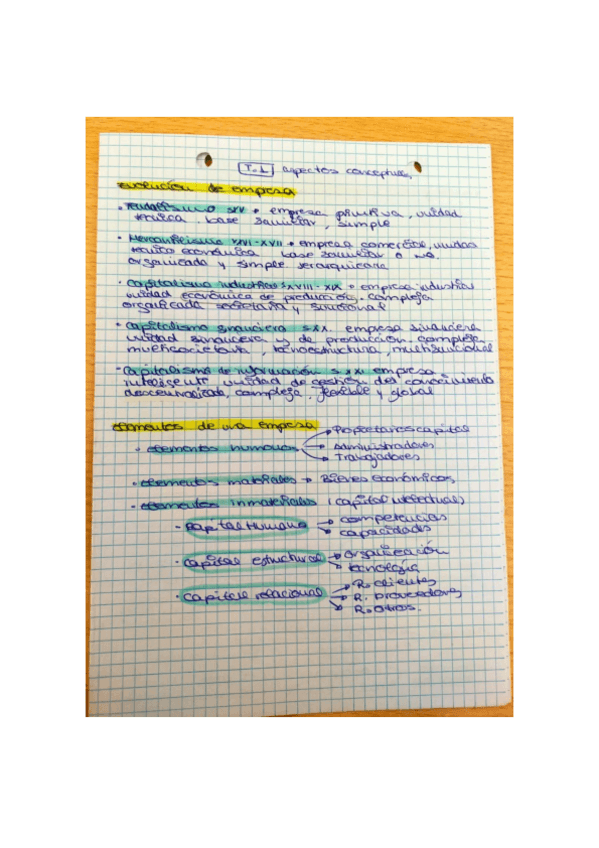 T.1 aspectos conceptuales,
evolución de empresa
• Feudalismo SXV → empresa primitiva, unidad
técnica base familiar, simple
• Mercantilismo XVI-XVII → empresa comercial, unidad
técnico económica base familiar o no
organizada y simple. jerarquizada
• capitalismo industrial SXVIII-XIX → empresa industrial
unidad económica de producción. compleja
organizada societaria y funcional
• capitalismo financiero SXX. empresa financiera
unidad financiera y de producción compleja
multisocietaria, tecnoestructura, multifuncional
• capitalismo de información SXXI empresa
inteligente unidad de gestión del conocimiento
descentralizada, compleja, flexible y global
elementos de una empresa
• elementos humanos → Propietarios capital
→ Administradores
→ Trabajadores
• elementos materiales → Bienes económicos,
• elementos inmateriales (capital intelectual)
• capital Humano → competencias
→ capacidades
• capital estructural → organización
→ tecnología
• capital relacional → R. clientes
→ R. proveedores
→ R. otros.